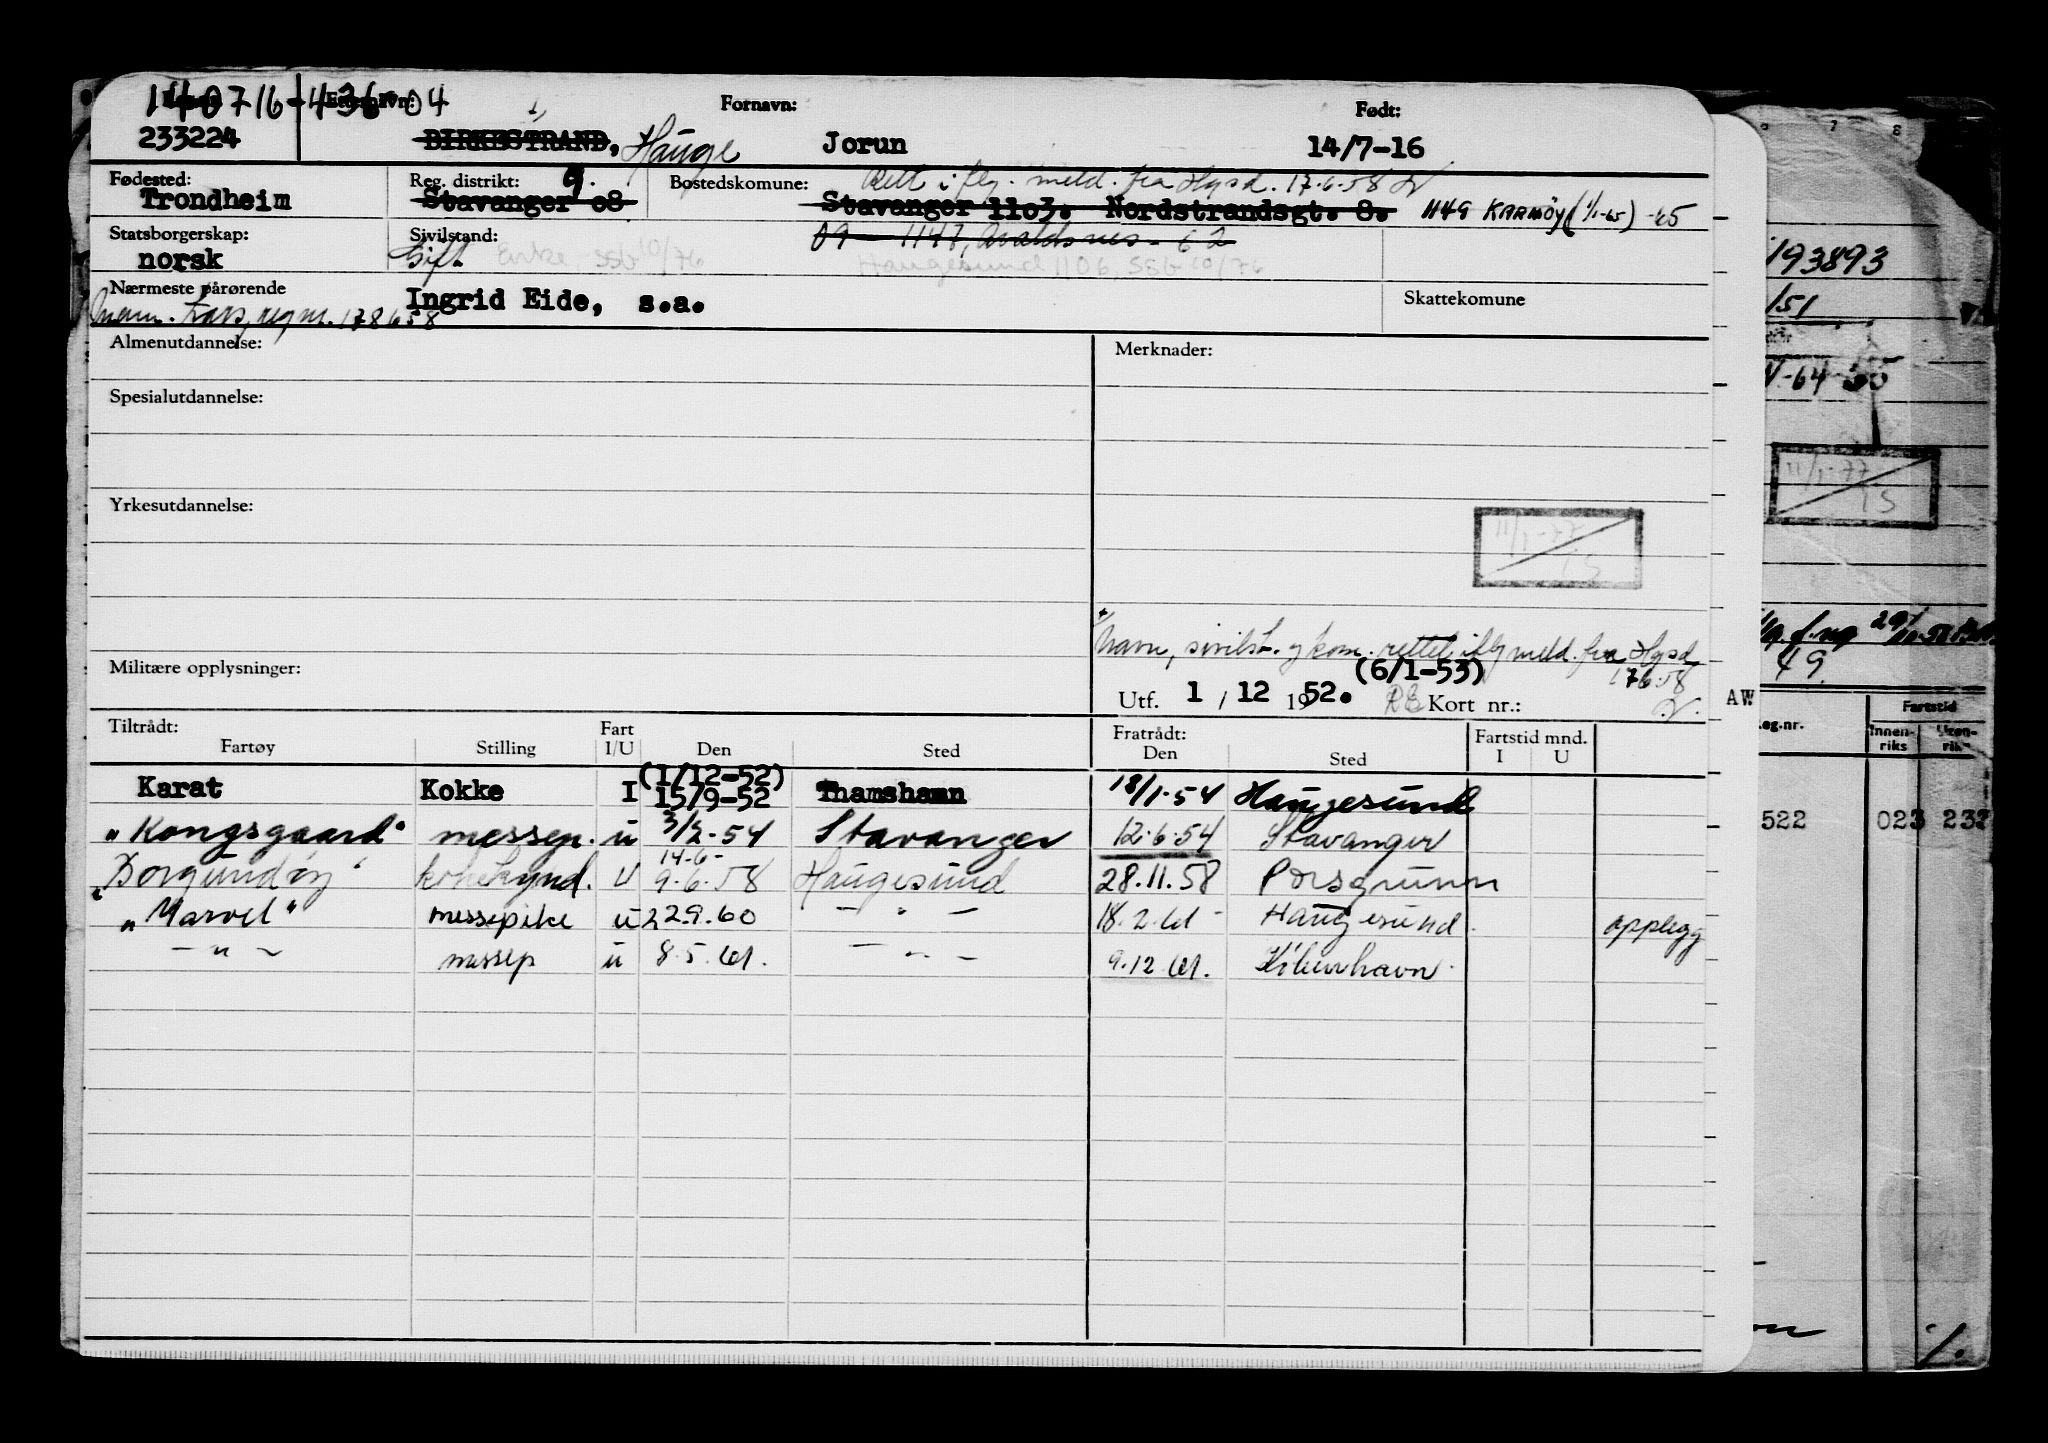 140716-43604
233224
Fornavn:
Født:
BIRKESTRAND, Hauge
Jorun
14/7-16
Fødested:
Trondheim
Reg. distrikt: 9.
Stavanger 08
Bostedskomune:
Rett i flg. meld. fra Hgsd. 17.6.58
Stavanger 1103. Nordstrandsgt. 8.
1149 KARMØY (1/1-65) -65
Statsborgerskap:
norsk
Sivilstand:
Gift
Enke, SSb 10/76
09 - 1147, Avaldsnes - 62
Haugesund 1106, SSb 10/76
Nærmeste pårørende
Ingrid Eide, s.a.
Skattekomune
Mann. Lars, reg nr. 178658
Almenutdannelse:
Merknader:
Spesialutdannelse:
Yrkesutdannelse:
11/1-77
Navn, sivilst. og kom. rettet iflg meld. fra Hgsd
17 6.58
Militære opplysninger:
(6/1-53)
Utf. 1 / 12 1952.
Kort nr.:
Tiltrådt:
Fartøy
Stilling
Fart I/U
Den
Sted
Fratrådt:
Den
Sted
Fartstid mnd.
I U
Karat Kokke I (1/12-52) 15/9-52 Thamshamn 18/1-54 Haugesund
"Kongsgaard" messep. u 3/2-54 Stavanger 12.6.54 Stavanger
"Borgundøy" U 14-6- 9.6.58 Haugesund 28.11.58 Porsgrunn
"Marvel" messepike u 22.9.60 - " - 18.2.61 Haugesund. opplegg
- " - messep u 8.5.61. - " - 9.12.61. København.
193893
151
V-64
11/1-77
49.
AW
Reg.nr.
Fartstid
Innen-
riks
Uten-
riks
522 023 232